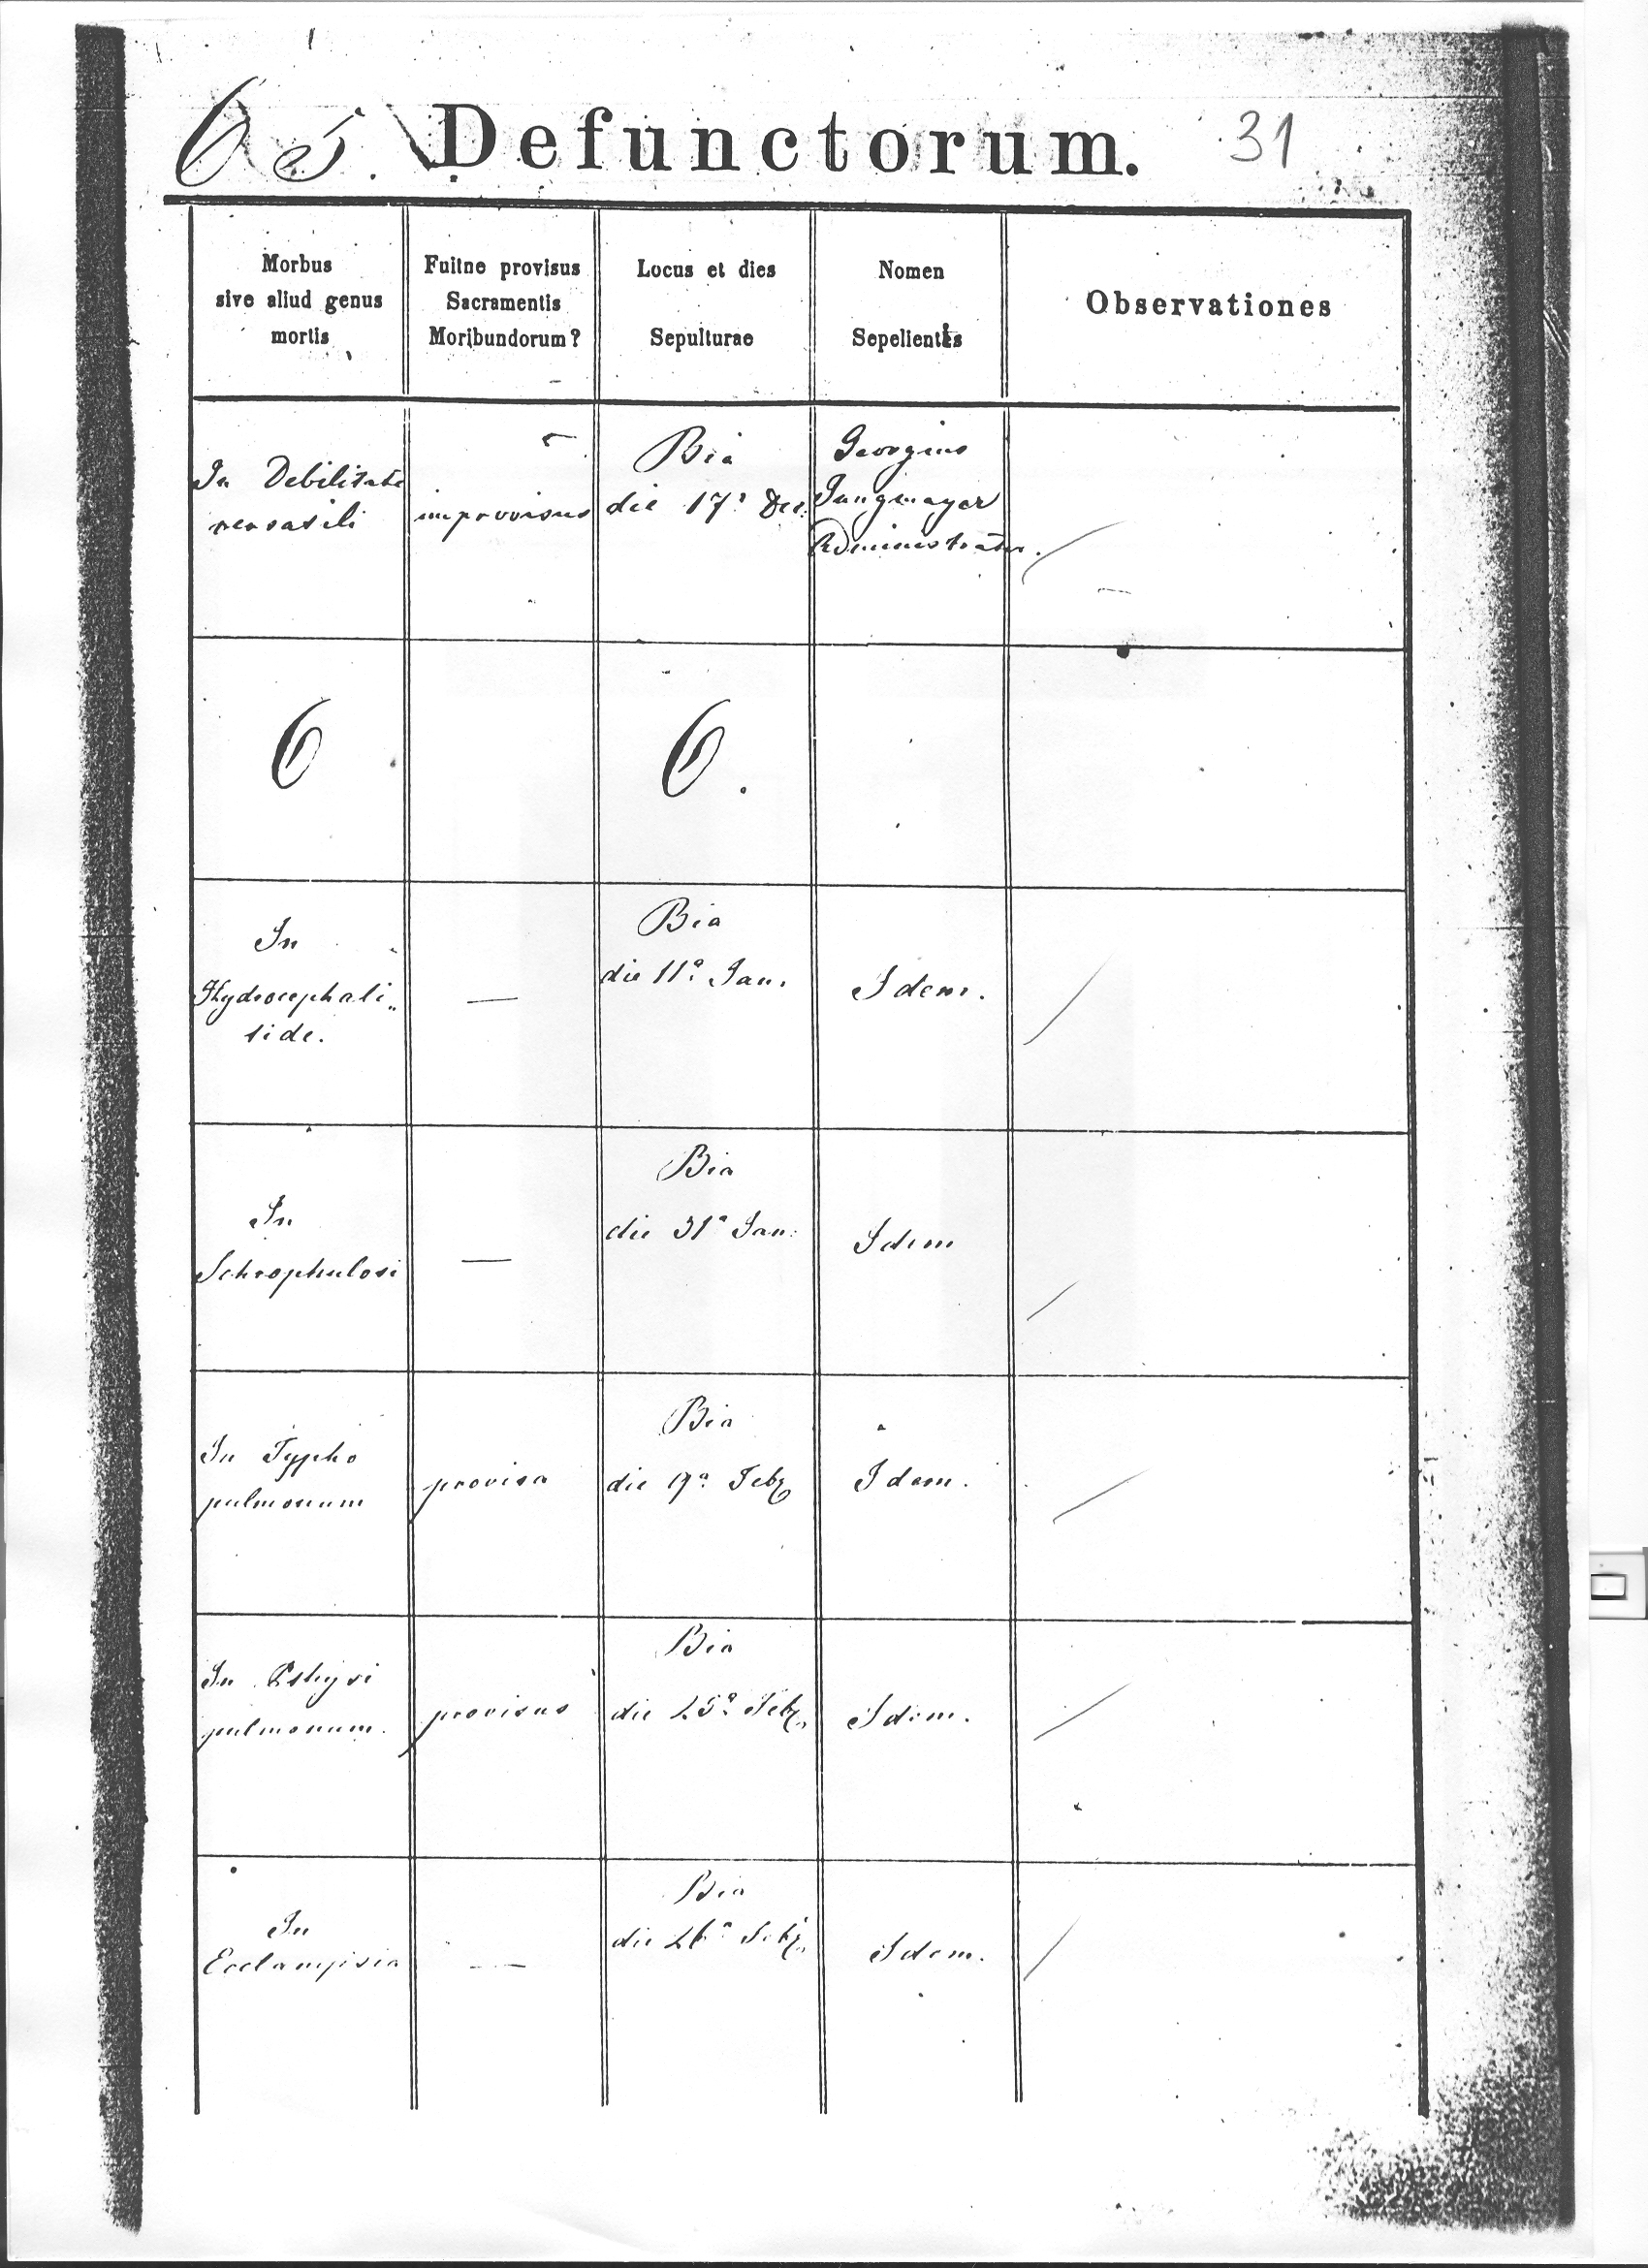 65. Defunctorum. 31
Morbus
sive aliud genus
mortis
Fuitne provisus
Sacramentis
Moribundorum?
Locus et dies
Sepulturae
Nomen
Sepelientis
Observationes
In Debilitate
improvisus
Bia
die 17ª Dec.
Georgius
Jungmayer
Administrator.
6
6.
In
Hydrocephali„
tide.
—
Bia
die 11ª Jan.
Idem.
In
Schrophulosi
—
Bia
die 31ª Jan:
Idem
In Typho
pulmonum
provisa
Bia
die 19ª Feb
Idem.
In Pthysi
pulmonum.
provisus
Bia
die 25ª Feb
Idem.
In
Ecclampsia
—
Bia
die 26ª Feb
Idem.